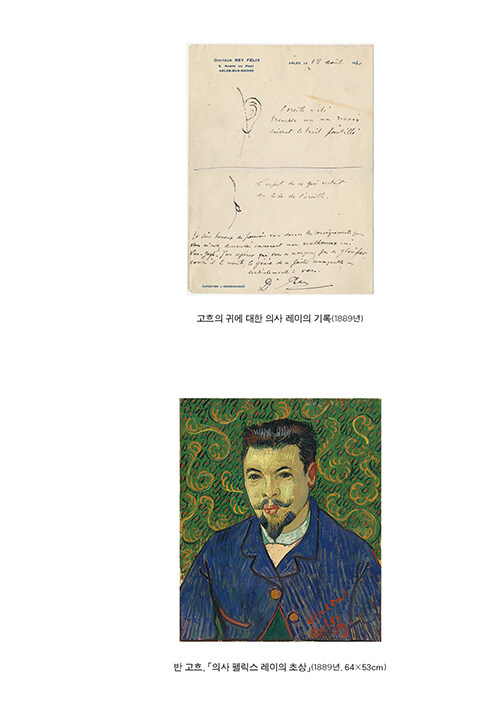 DOCTEUR REY FÉLIX
6, RAMPE DU PONT
ARLES-SUR-RHONE
ARLES, LE 18 août
L'oreille a été
tranchée avec un rasoir
suivant le trait pointillé
L'aspect de ce qui restait
du lobe de l'oreille.
Je suis heureux de pouvoir vous donner les renseignements que
vous m'avez demandés concernant mon malheureux ami
Van Gogh. J'espère que vous ne manquerez pas de glorifier
comme il le mérite le génie de ce peintre remarquable
cordialement à vous.
Dr Rey
L'ORDONNANCE
고흐의 귀에 대한 의사 레이의 기록(1889년)
Vincent
Arles
반 고흐, 「의사 펠릭스 레이의 초상」(1889년, 64×53cm)